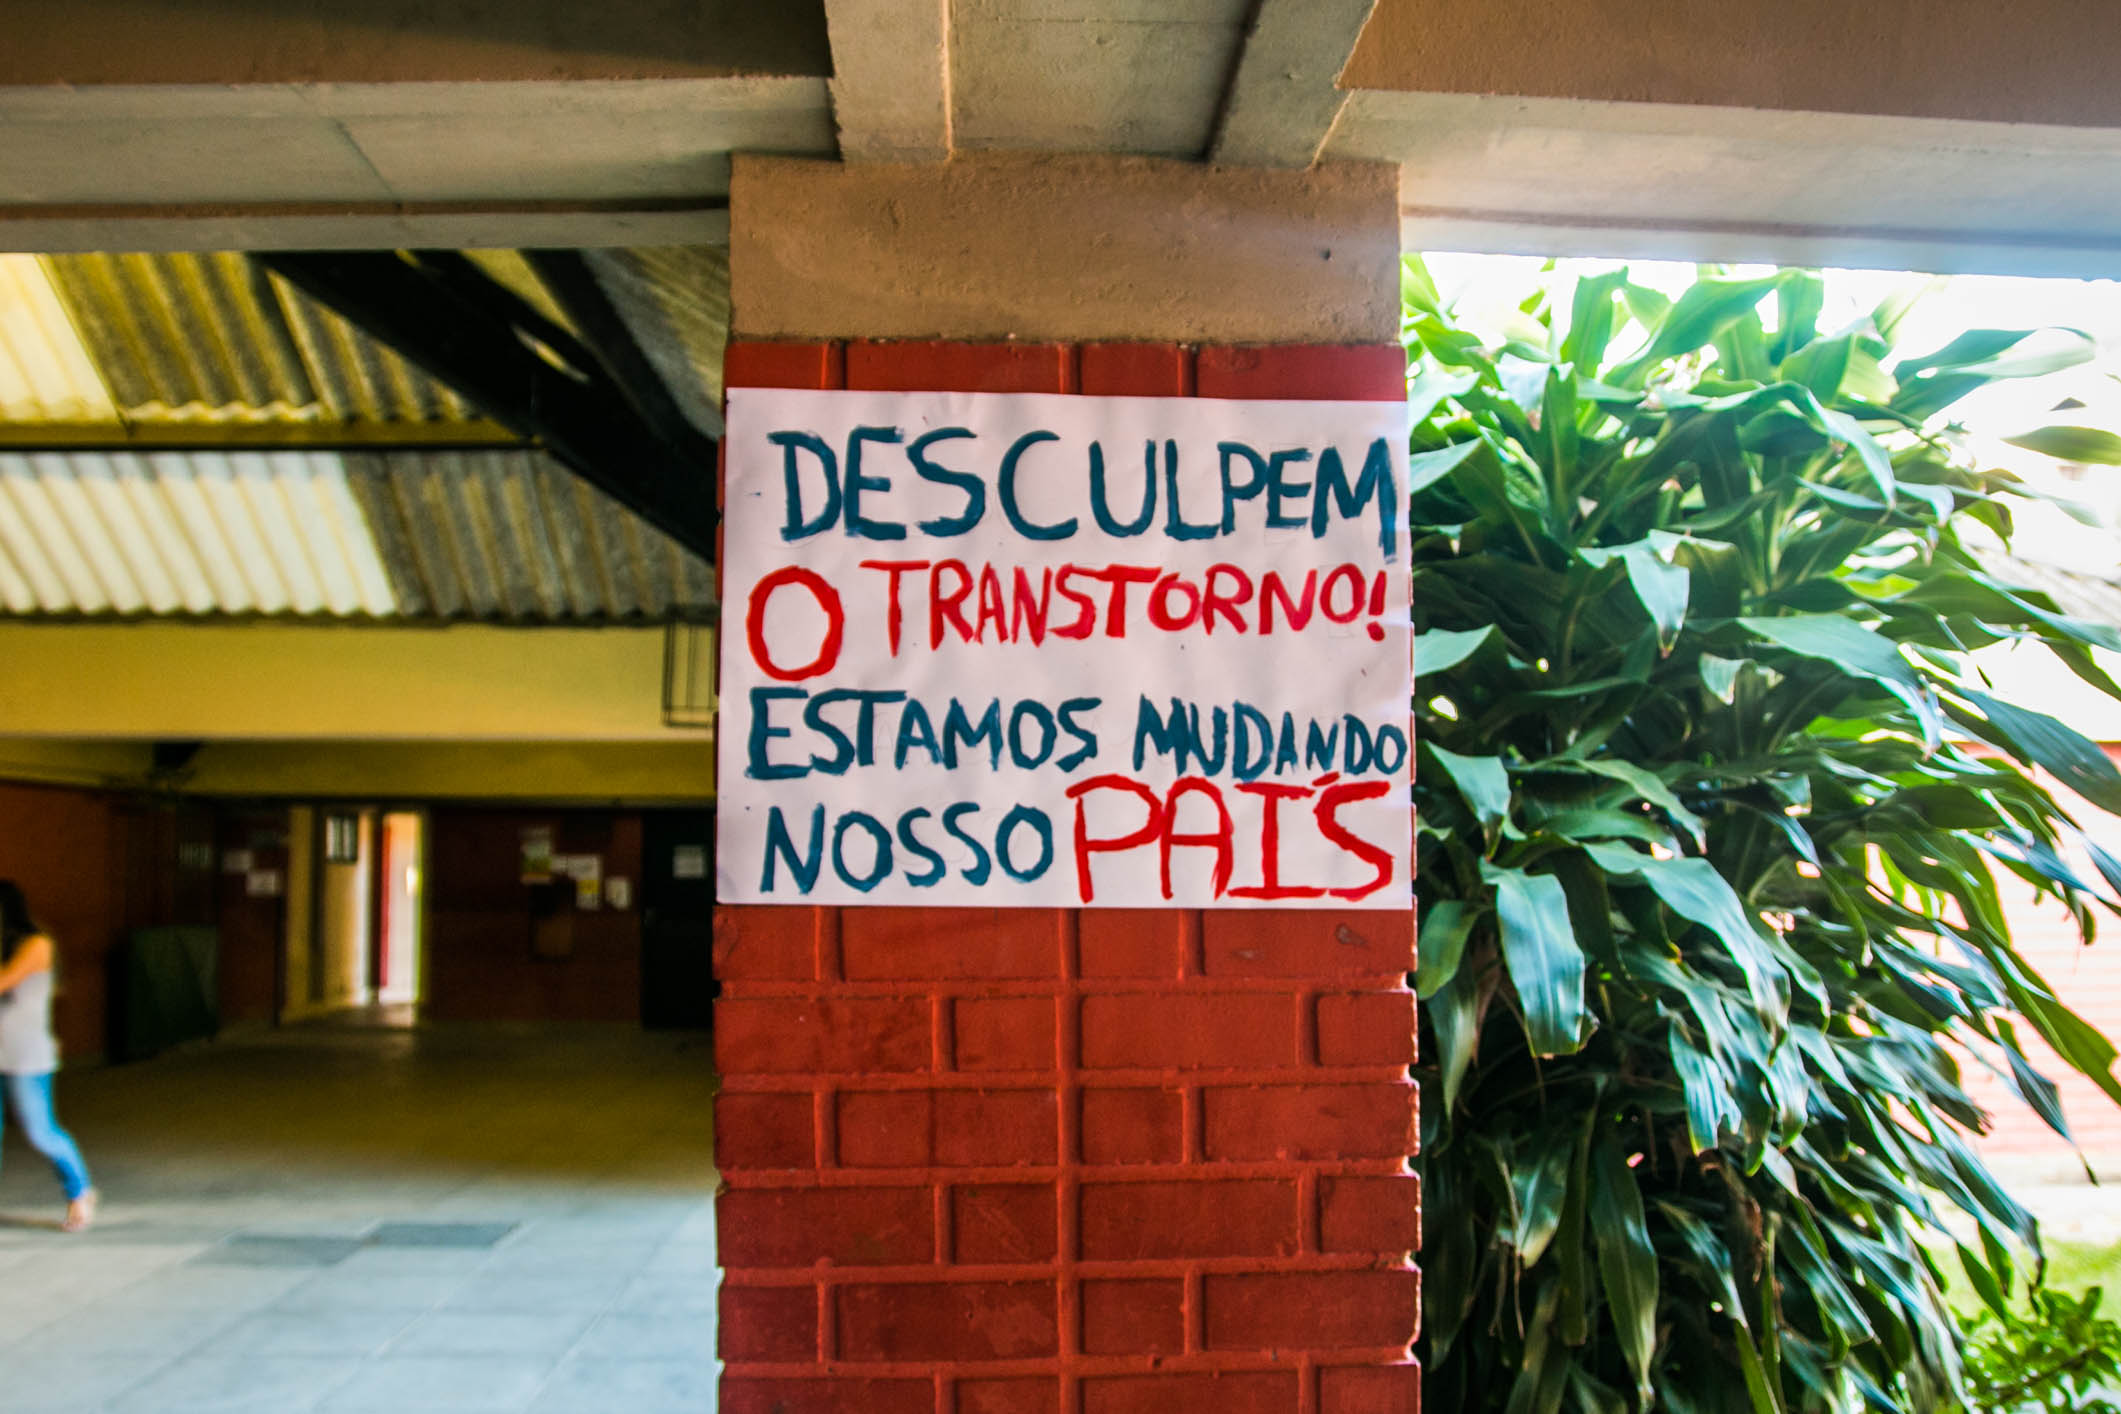 DESCULPEM
O TRANSTORNO!
ESTAMOS MUDANDO
NOSSO PAÍS